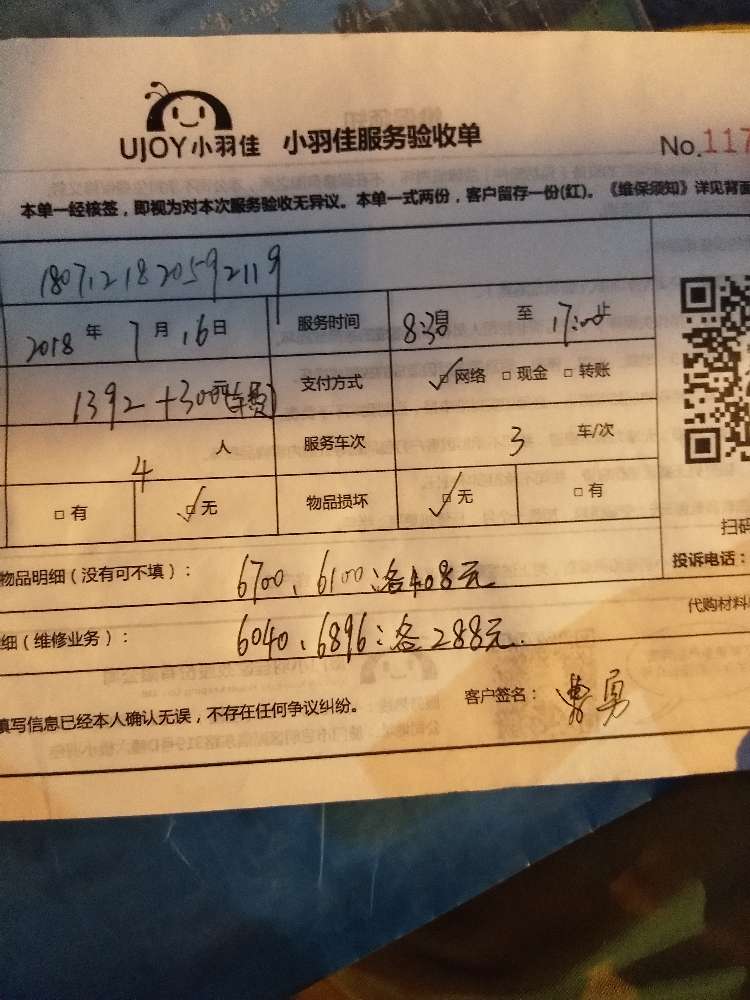 UJOY小羽佳 小羽佳服务验收单 No.117
本单一经核签，即视为对本次服务验收无异议。本单一式两份，客户留存一份(红)。《维保须知》详见背面
1807121820592119
2018 年 7 月 16 日 服务时间 8:30 至 17:00 止
1392+300元(车费) 支付方式 ☑网络 □现金 □转账
4 人 服务车次 3 车/次
□有 ☑无 物品损坏 ☑无 □有
扫码
物品明细（没有可不填）： 6700、6100：各408元 投诉电话：
细（维修业务）： 6040、6896：各288元. 代购材料
填写信息已经本人确认无误，不存在任何争议纠纷。 客户签名：曹勇